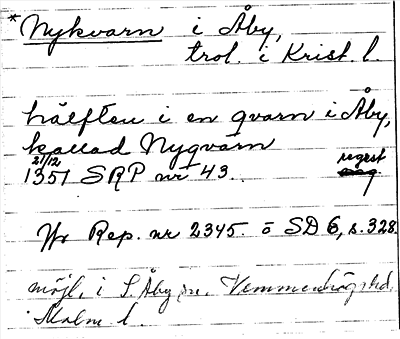 *Nykvarn i Åby,
trol. i Krist. l.
hälften i en qvarn i Åby,
kallad Nyqvarn
21/12 regest
1351 SRP nr 43.
Jfr Rep. nr 2345. o SD 6, s. 328.
möjl. i S. Åby sn, Vemmenhögs hd,
Malm. l.